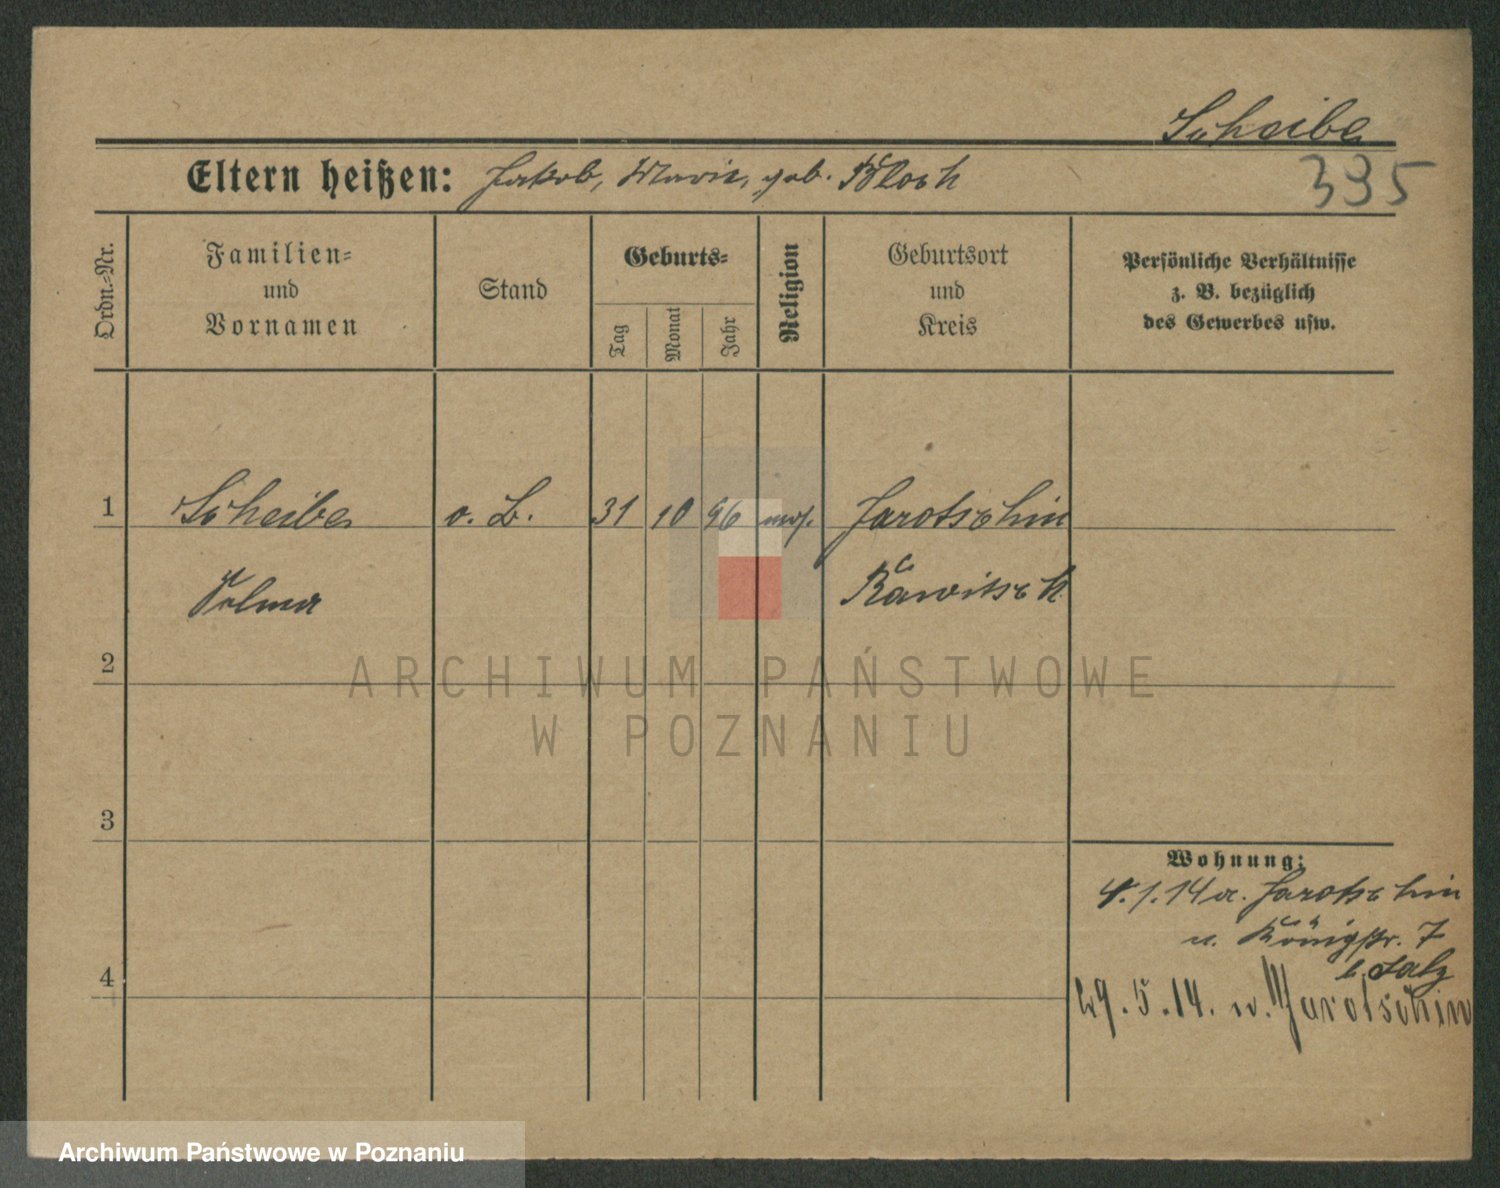 Scheibe
335
Eltern heißen: Jakob, Marie, geb. Bloch
Ordn.=Nr.
Familien=
und
Vornamen
Stand
Geburts=
Tag
Monat
Jahr
Religion
Geburtsort
und
Kreis
Persönliche Verhältnisse
z. B. bezüglich
des Gewerbes usw.
1 Scheibe o. B. 31 10 96 mos. Jarotschin
Selma Rawitsch
2
ARCHIWUM PAŃSTWOWE
W POZNANIU
3
Wohnung:
4.1.14 a. Jarotschin
n. Königstr. 7
b. Salz
4
29.5.14. n. Jarotschin
Archiwum Państwowe w Poznaniu